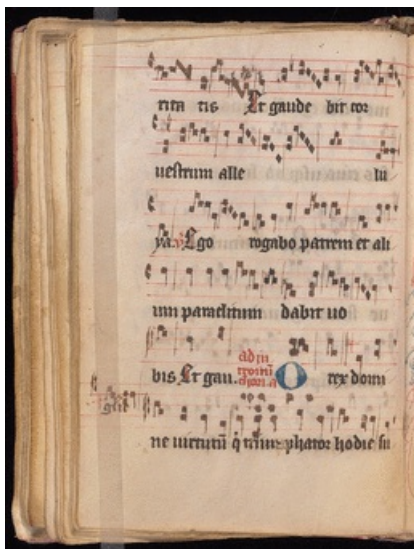 rita tis Et gaude bit cor
uestrum alle lu
ya. Ego rogabo patrem et ali
um paraclitum dabit uo
bis Et gau. O rex domi
ne uirtutũ q̇ triumphator hodie su